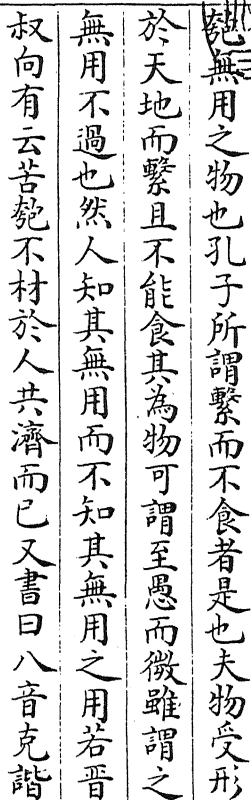 匏無用之物也孔子所謂繫而不食者是也夫物受形
於天地而繫且不能食其為物可謂至愚而微雖謂之
無用不過也然人知其無用而不知其無用之用若晋
叔向有云苦匏不材於人共濟而已又書曰八音克諧